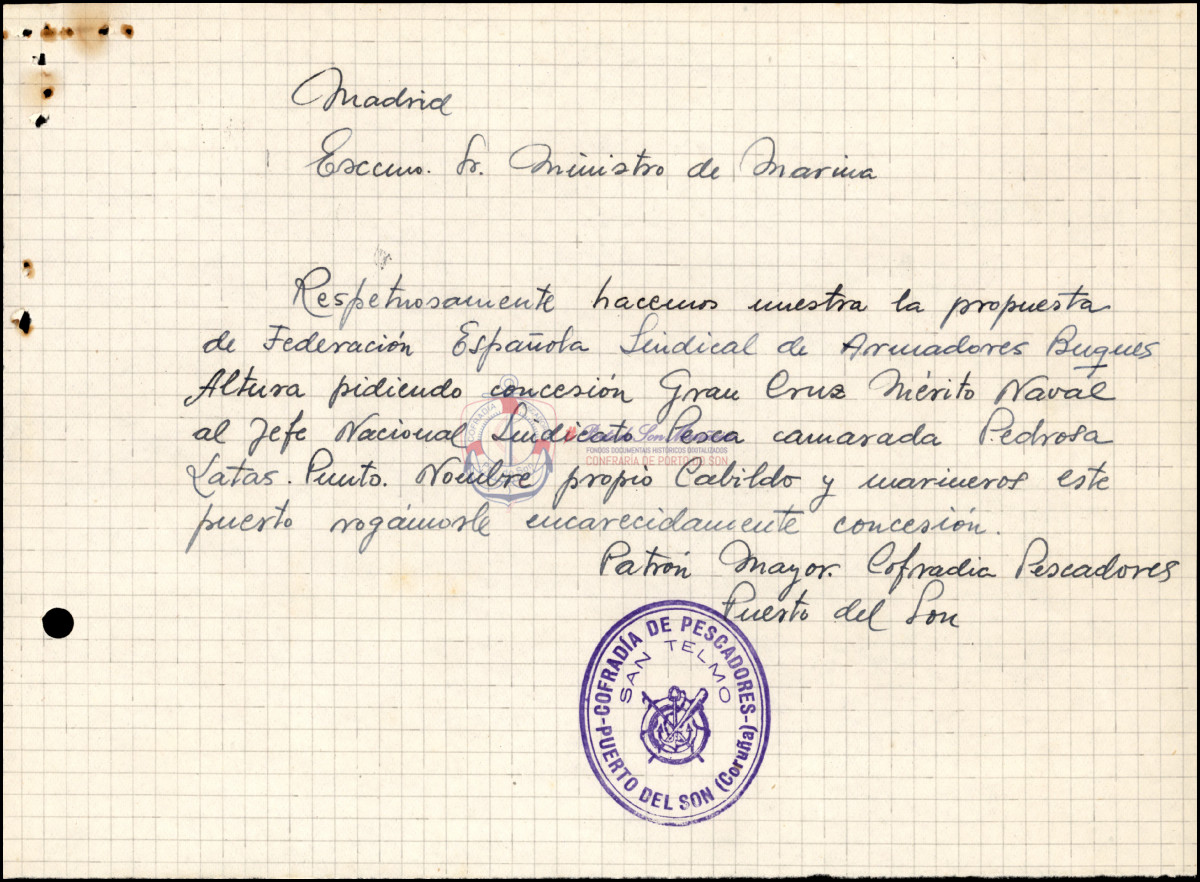 Madrid
Excmo. Sr. Ministro de Marina
Respetuosamente hacemos nuestra la propuesta
de Federación Española Sindical de Armadores Buques
Altura pidiendo concesión Gran Cruz Mérito Naval
al Jefe Nacional Sindicato Pesca camarada Pedrosa
Latas. Punto. Nombre propio Cabildo y marineros este
puerto rogámosle encarecidamente concesión.
Patrón Mayor. Cofradia Pescadores
Puerto del Son
COFRADÍA DE PESCADORES
SAN TELMO
PUERTO DEL SON (Coruña)
FONDOS DOCUMENTAIS HISTÓRICOS DIXITALIZADOS
CONFRARÍA DE PORTO DO SON